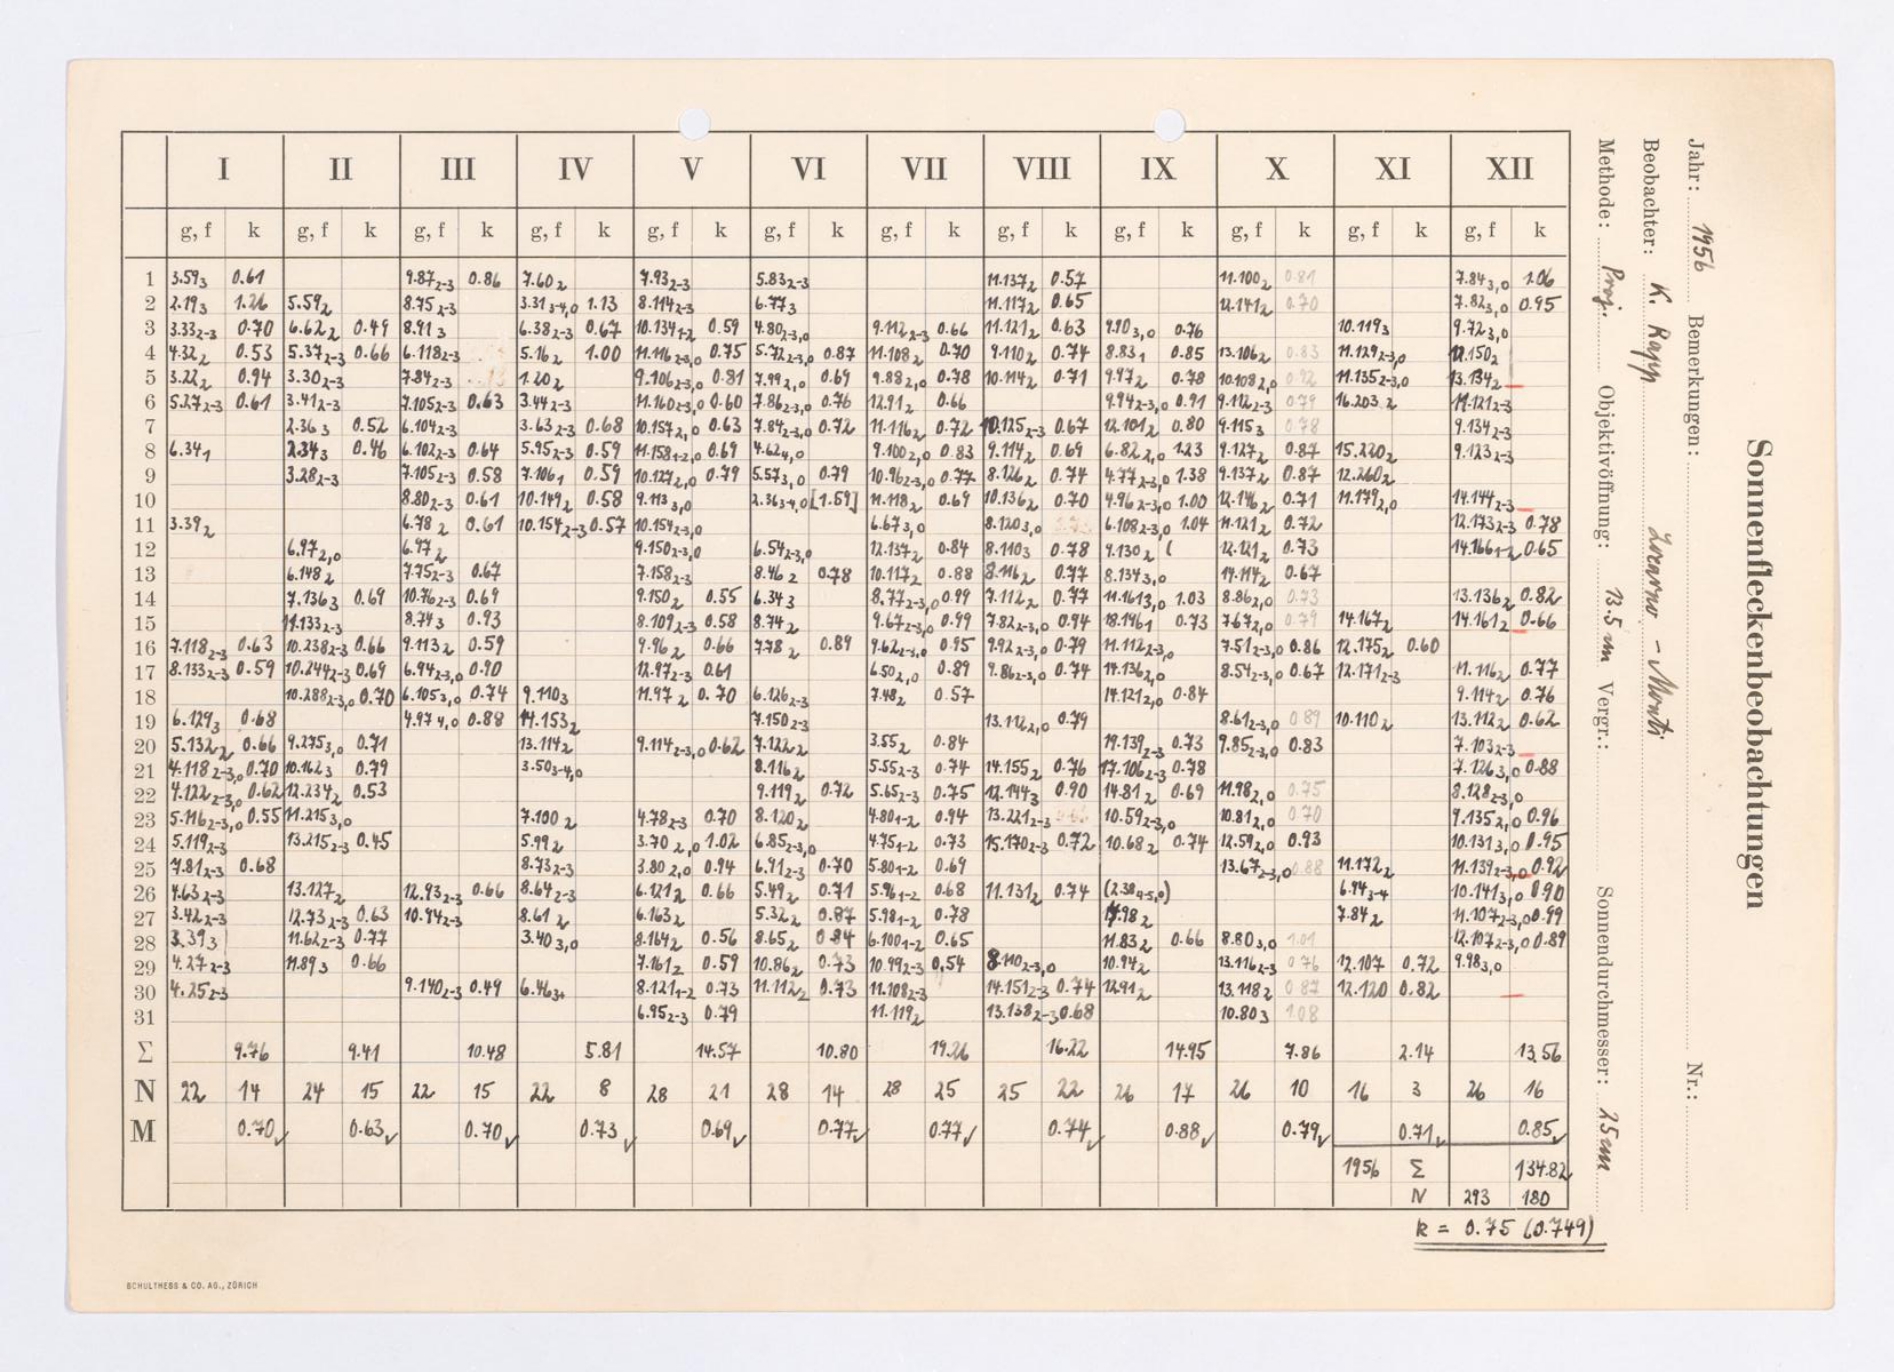 Sonnenfleckenbeobachtungen
Jahr: 1956 Bemerkungen: Nr.:
Beobachter: K. Rapp Locarno - Monti
Methode: Proj. Objektivöffnung: 13.5 cm Vergr.: Sonnendurchmesser: 25 cm
I II III IV V VI VII VIII IX X XI XII
g, f k g, f k g, f k g, f k g, f k g, f k g, f k g, f k g, f k g, f k g, f k g, f k
1 3.59 3 0.61 9.87 2-3 0.86 7.60 2 7.93 2-3 5.83 2-3 11.137 2 0.57 11.100 2 0.81 7.84 3,0 1.06
2 2.19 3 1.26 5.59 2 8.75 2-3 3.31 3-4,0 1.13 8.114 2-3 6.77 3 11.117 2 0.65 12.141 2 0.70 7.82 3,0 0.95
3 3.33 2-3 0.70 6.62 2 0.49 8.91 3 6.38 2-3 0.67 10.134 1-2 0.59 4.80 2-3,0 9.112 2-3 0.66 11.121 2 0.63 9.90 3,0 0.76 10.119 3 9.72 3,0
4 4.32 2 0.53 5.37 2-3 0.66 6.118 2-3 5.16 2 1.00 11.116 2-3,0 0.75 5.72 2-3,0 0.87 11.108 2 0.70 9.110 2 0.74 8.83 1 0.85 13.106 2 0.83 11.129 2-3,0 12.150 2
5 3.22 2 0.94 3.30 2-3 7.84 2-3 1.20 2 9.106 2-3,0 0.81 7.99 2,0 0.69 9.88 2,0 0.78 10.114 2 0.71 9.97 2 0.78 10.108 2,0 0.92 11.135 2-3,0 13.134 2
6 5.27 2-3 0.61 3.41 2-3 7.105 2-3 0.63 3.44 2-3 11.160 2-3,0 0.60 7.86 2-3,0 0.76 12.91 2 0.66 9.94 2-3,0 0.91 9.112 2-3 0.79 16.203 2 14.121 2-3
7 2.36 3 0.52 6.104 2-3 3.63 2-3 0.68 10.157 2,0 0.63 7.84 2-3,0 0.72 11.116 2 0.72 10.125 2-3 0.67 12.101 2 0.80 9.115 3 0.78 9.134 2-3
8 6.34 1 2.34 3 0.46 6.102 2-3 0.64 5.95 2-3 0.59 11.158 1-2,0 0.69 4.62 4,0 9.100 2,0 0.83 9.114 2 0.69 6.82 2,0 1.23 9.127 2 0.87 15.220 2 9.123 2-3
9 3.28 2-3 7.105 2-3 0.58 7.106 1 0.59 10.127 2,0 0.79 5.57 3,0 0.79 10.96 2-3,0 0.77 8.126 2 0.74 4.77 2-3,0 1.38 9.137 2 0.87 12.260 2
10 8.80 2-3 0.61 10.149 2 0.58 9.113 3,0 2.36 3-4,0 [1.59] 11.118 2 0.69 10.136 2 0.70 4.96 2-3,0 1.00 12.146 2 0.71 11.179 2,0 14.144 2-3
11 3.39 2 6.78 2 0.61 10.154 2-3 0.57 10.154 2-3,0 6.67 3,0 8.120 3,0 6.108 2-3,0 1.04 11.121 2 0.72 12.173 2-3 0.78
12 6.97 2,0 6.97 2 9.150 2-3,0 6.54 2-3,0 12.137 2 0.84 8.110 3 0.78 9.130 2 12.121 2 0.73 14.166 1-2 0.65
13 6.148 2 7.75 2-3 0.67 7.158 2-3 8.46 2 0.78 10.117 2 0.88 8.116 2 0.77 8.134 3,0 14.114 2 0.67
14 7.136 3 0.69 10.76 2-3 0.69 9.150 2 0.55 6.34 3 8.77 2-3,0 0.99 7.112 2 0.77 11.161 3,0 1.03 8.86 2,0 0.73 13.136 2 0.82
15 11.133 2-3 8.74 3 0.93 8.109 2-3 0.58 8.74 2 9.67 2-3,0 0.99 7.82 2-3,0 0.94 18.196 1 0.73 7.67 2,0 0.79 14.167 2 14.161 2 0.66
16 7.118 2-3 0.63 10.238 2-3 0.66 9.113 2 0.59 9.96 2 0.66 7.78 2 0.89 9.62 2-3,0 0.95 9.92 2-3,0 0.79 11.112 2-3,0 7.51 2-3,0 0.86 12.175 2 0.60
17 8.133 2-3 0.59 10.244 2-3 0.69 6.94 2-3,0 0.90 12.97 2-3 0.61 6.50 2,0 0.89 9.86 2-3,0 0.74 14.136 2,0 8.54 2-3,0 0.67 12.171 2-3 11.116 2 0.77
18 10.288 2-3,0 0.70 6.105 3,0 0.74 9.110 3 11.97 2 0.70 6.126 2-3 7.48 2 0.57 14.121 2,0 0.84 9.114 2 0.76
19 6.129 3 0.68 4.97 4,0 0.88 14.153 2 7.150 2-3 13.112 2,0 0.79 8.61 2-3,0 0.89 10.110 2 13.112 2 0.62
20 5.132 2 0.66 9.275 3,0 0.71 13.114 2 9.114 2-3,0 0.62 7.122 2 3.55 2 0.84 19.139 2-3 0.73 9.85 2-3,0 0.83 7.103 2-3
21 4.118 2-3,0 0.70 10.162 3 0.79 3.50 3-4,0 8.116 2 5.55 2-3 0.74 14.155 2 0.76 17.106 2-3 0.78 7.126 3,0 0.88
22 4.122 2-3,0 0.62 12.234 2 0.53 9.119 2 0.72 5.65 2-3 0.75 12.144 3 0.90 14.81 2 0.69 11.98 2,0 0.75 8.128 2-3,0
23 5.116 2-3,0 0.55 11.215 3,0 7.100 2 4.78 2-3 0.70 8.120 2 4.80 1-2 0.94 13.221 2-3 10.59 2-3,0 10.81 2,0 0.70 9.135 2,0 0.96
24 5.119 2-3 13.215 2-3 0.45 5.99 2 3.70 2,0 1.02 6.85 2-3,0 4.75 1-2 0.73 15.170 2-3 0.72 10.68 2 0.74 12.59 2,0 0.93 10.131 3,0 0.95
25 7.81 2-3 0.68 8.73 2-3 3.80 2,0 0.94 6.71 2-3 0.70 5.80 1-2 0.69 13.67 2-3,0 0.88 11.172 2 11.139 2-3,0 0.92
26 4.63 2-3 13.127 2 12.93 2-3 0.66 8.64 2-3 6.121 2 0.66 5.49 2 0.71 5.96 1-2 0.68 11.131 2 0.74 (2.38 4-5,0) 6.94 3-4 10.141 3,0 0.90
27 3.42 2-3 12.73 2-3 0.63 10.94 2-3 8.61 2 6.163 2 5.32 2 0.87 5.98 1-2 0.78 14.98 2 7.84 2 11.107 2-3,0 0.99
28 3.39 3 11.62 2-3 0.77 3.40 3,0 8.164 2 0.56 8.65 2 0.84 6.100 1-2 0.65 11.83 2 0.66 8.80 3,0 1.01 12.107 2-3,0 0.89
29 4.27 2-3 11.89 3 0.66 7.161 2 0.59 10.86 2 0.73 10.99 2-3 0.54 8.110 2-3,0 10.94 2 13.116 2-3 0.76 12.107 0.72 9.98 3,0
30 4.25 2-3 9.140 2-3 0.49 6.46 3+ 8.121 1-2 0.73 11.112 2 0.73 11.108 2-3 14.151 2-3 0.74 12.91 2 13.118 2 0.87 12.120 0.82
31 6.95 2-3 0.79 11.119 2 13.138 2-3 0.68 10.80 3 1.08
Σ 9.76 9.41 10.48 5.81 14.57 10.80 19.26 16.22 14.95 7.86 2.14 13.56
N 22 14 24 15 22 15 22 8 28 21 28 14 28 25 25 22 26 17 26 10 16 3 26 16
M 0.70 0.63 0.70 0.73 0.69 0.77 0.77 0.74 0.88 0.79 0.71 0.85
1956 Σ 134.82
N 293 180
k = 0.75 (0.749)
SCHULTHESS & CO. AG., ZÜRICH